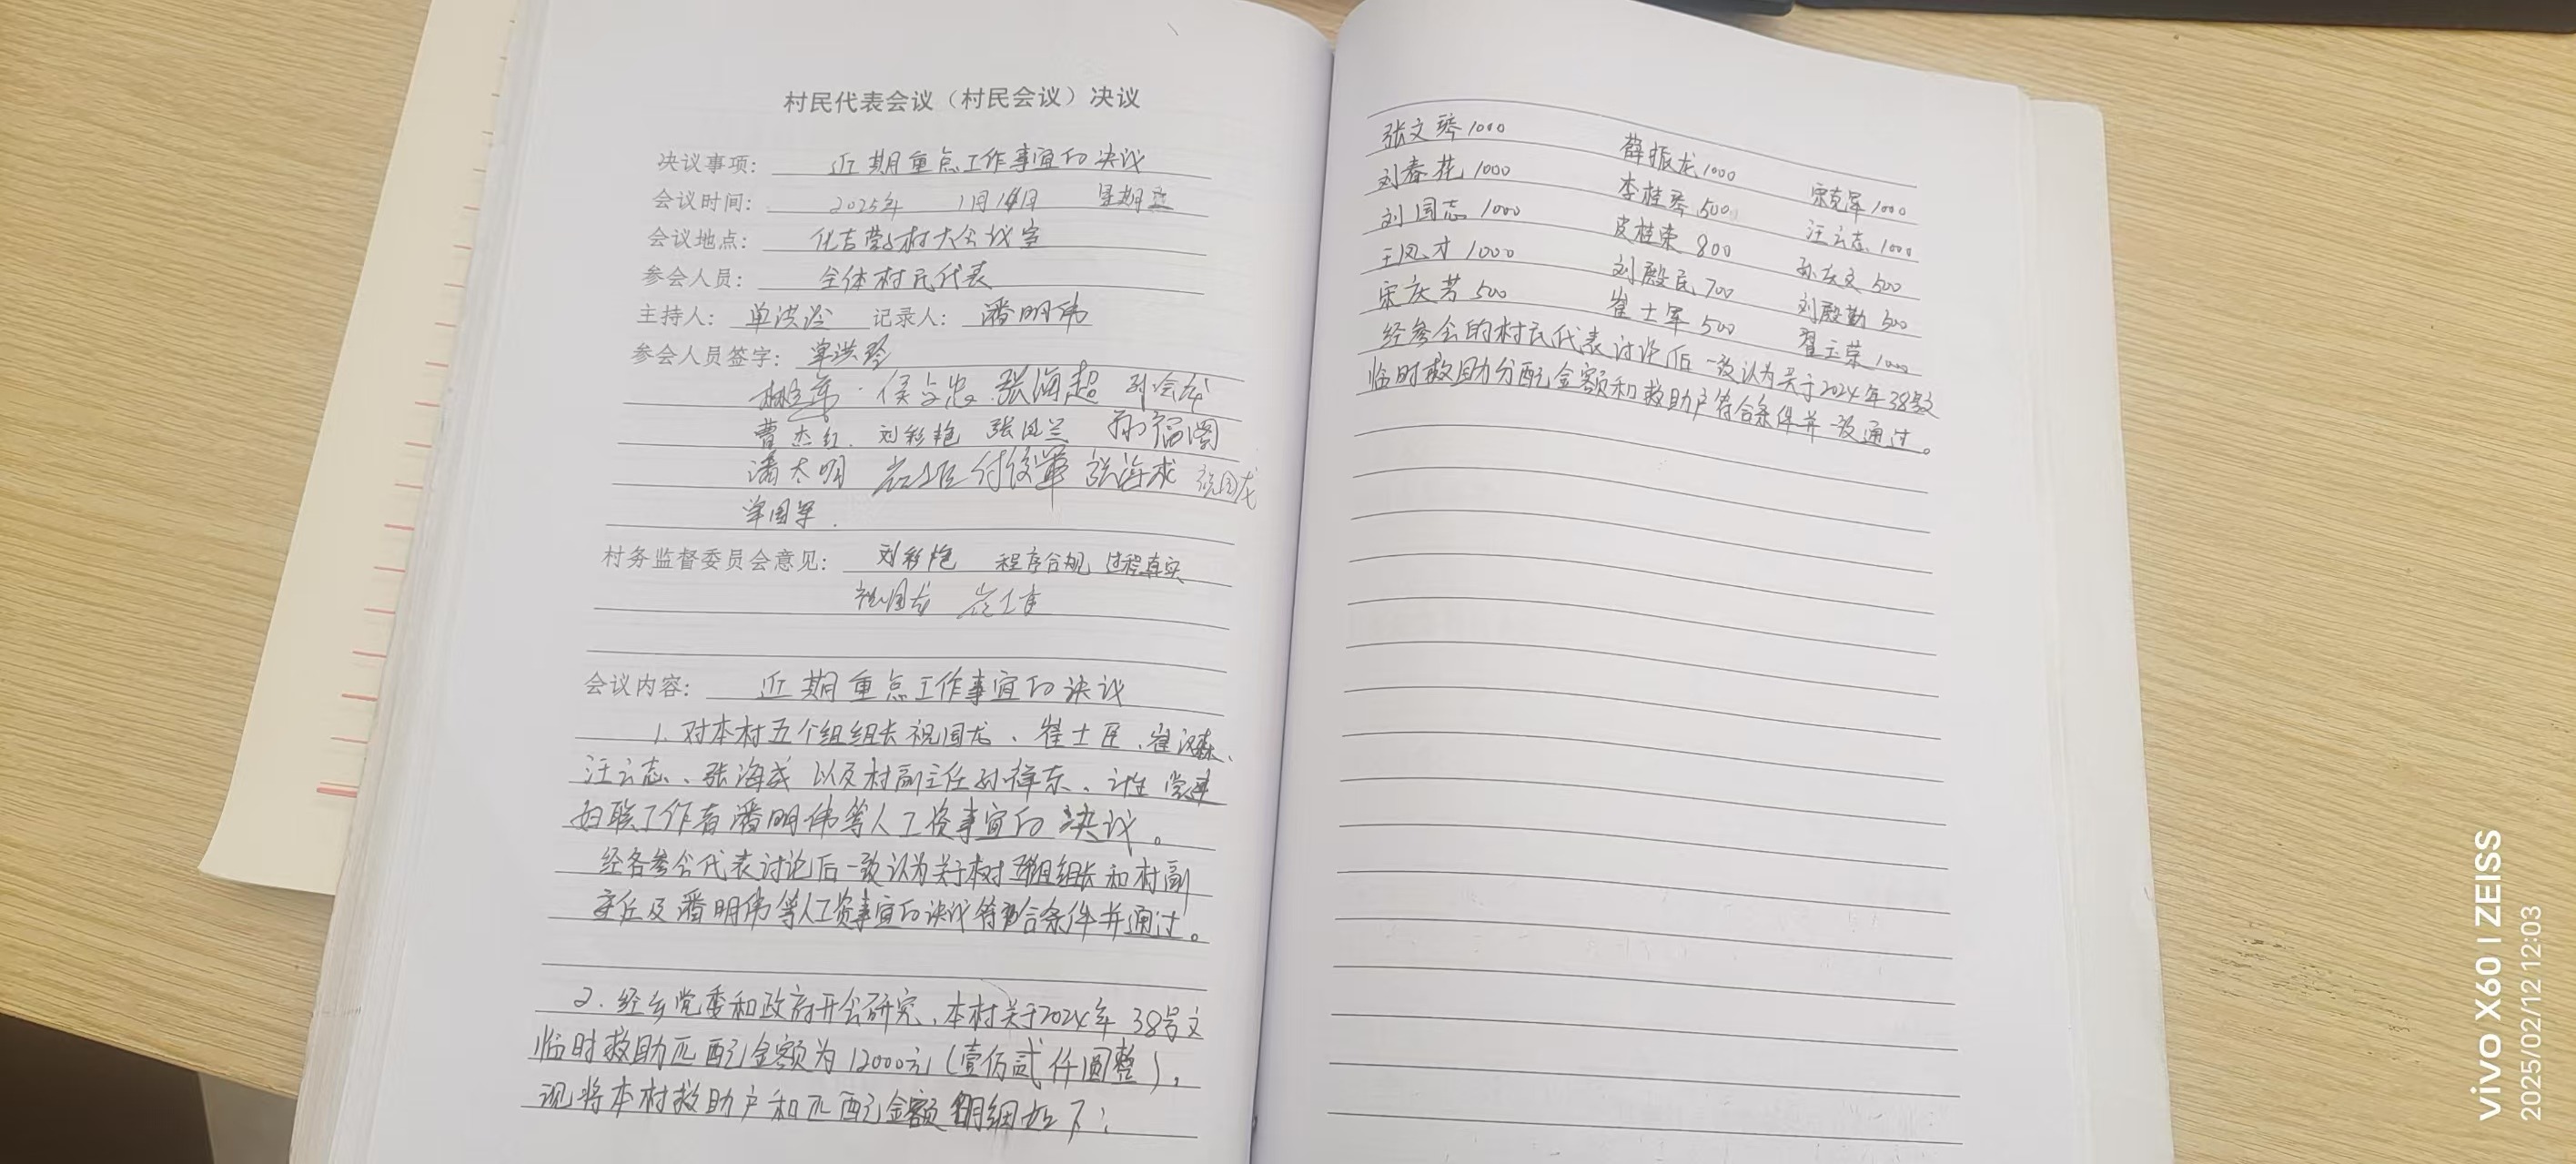 村民代表会议（村民会议）决议
决议事项： 近期重点工作事宜的决议
会议时间： 2025年 1月1日 星期五
会议地点： 化吉营村大会议室
参会人员： 全体村民代表
主持人： 单洪玲 记录人： 潘明伟
参会人员签字： 单洪玲
侯占忠 张海超
曹杰红 刘彩艳 张凤兰 孙福阁
潘太明 崔士臣 付俊军 张海成 祝国龙
单国军
村务监督委员会意见： 刘彩艳 程序合规 过程真实
祝国龙 崔士臣
会议内容： 近期重点工作事宜的决议
1. 对本村五个组组长祝国龙、崔士臣、崔汉森、
汪云志、张海成 以及村副主任孙祥东、计生 党建
妇联工作者潘明伟等人工资事宜的决议。
经各参会代表讨论后一致认为关于村组组长和村副
主任及潘明伟等人工资事宜的决议符合条件并通过。
2. 经乡党委和政府开会研究、本村关于2024年 38号文
临时救助匹配金额为12000元（壹佰贰仟圆整），
现将本村救助户和匹配金额明细如下：
张文琴1000 薛振龙1000 宋克军1000
刘春花1000 李桂琴500 汪云志1000
刘国志1000 皮桂荣800 孙友文500
王凤才1000 刘殿民700 刘殿勤500
宋庆芳500 崔士军500 翟玉荣1000
经参会的村民代表讨论后一致认为关于2024年38号文
临时救助分配金额和救助户符合条件并一致通过。
vivo X60 | ZEISS
2025/02/12 12:03